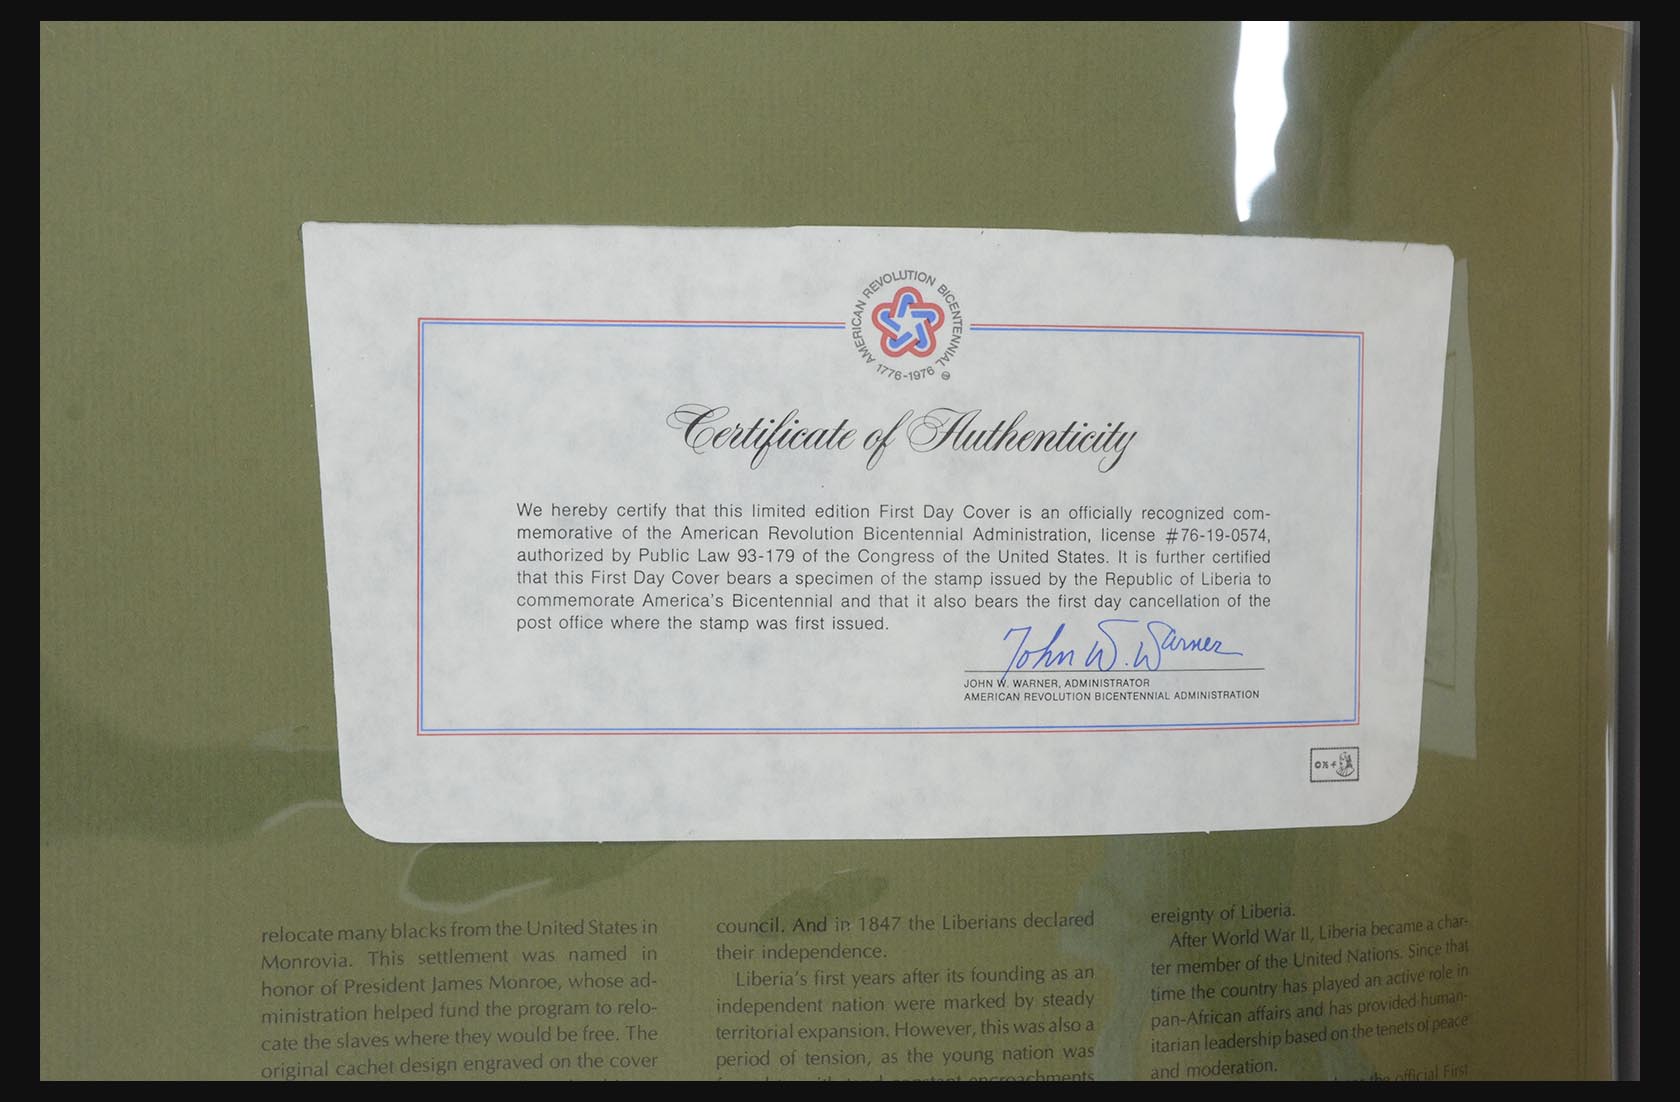 AMERICAN REVOLUTION BICENTENNIAL
1776-1976
Certificate of Authenticity
We hereby certify that this limited edition First Day Cover is an officially recognized com-
memorative of the American Revolution Bicentennial Administration, license #76-19-0574,
authorized by Public Law 93-179 of the Congress of the United States. It is further certified
that this First Day Cover bears a specimen of the stamp issued by the Republic of Liberia to
commemorate America's Bicentennial and that it also bears the first day cancellation of the
post office where the stamp was first issued.
John W. Warner
JOHN W. WARNER, ADMINISTRATOR
AMERICAN REVOLUTION BICENTENNIAL ADMINISTRATION
relocate many blacks from the United States in
Monrovia. This settlement was named in
honor of President James Monroe, whose ad-
ministration helped fund the program to relo-
cate the slaves where they would be free. The
original cachet design engraved on the cover
council. And in 1847 the Liberians declared
their independence.
Liberia's first years after its founding as an
independent nation were marked by steady
territorial expansion. However, this was also a
period of tension, as the young nation was
encroachments
ereignty of Liberia.
After World War II, Liberia became a char-
ter member of the United Nations. Since that
time the country has played an active role in
pan-African affairs and has provided human-
itarian leadership based on the tenets of peace
and moderation.
the official First